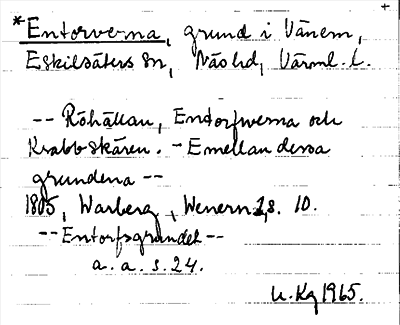 *Entorverna, grund i Vänern,
Eskilsäters sn, Näs hd, Värml. l.
-- Röhällan, Entorfwerna och
Krabbskären. - Emellan dessa
grundena --
1805, Warberg, Wenern, s. 10.
-- Entorfsgrundet --
a. a. s. 24.
U. Kg 1965.